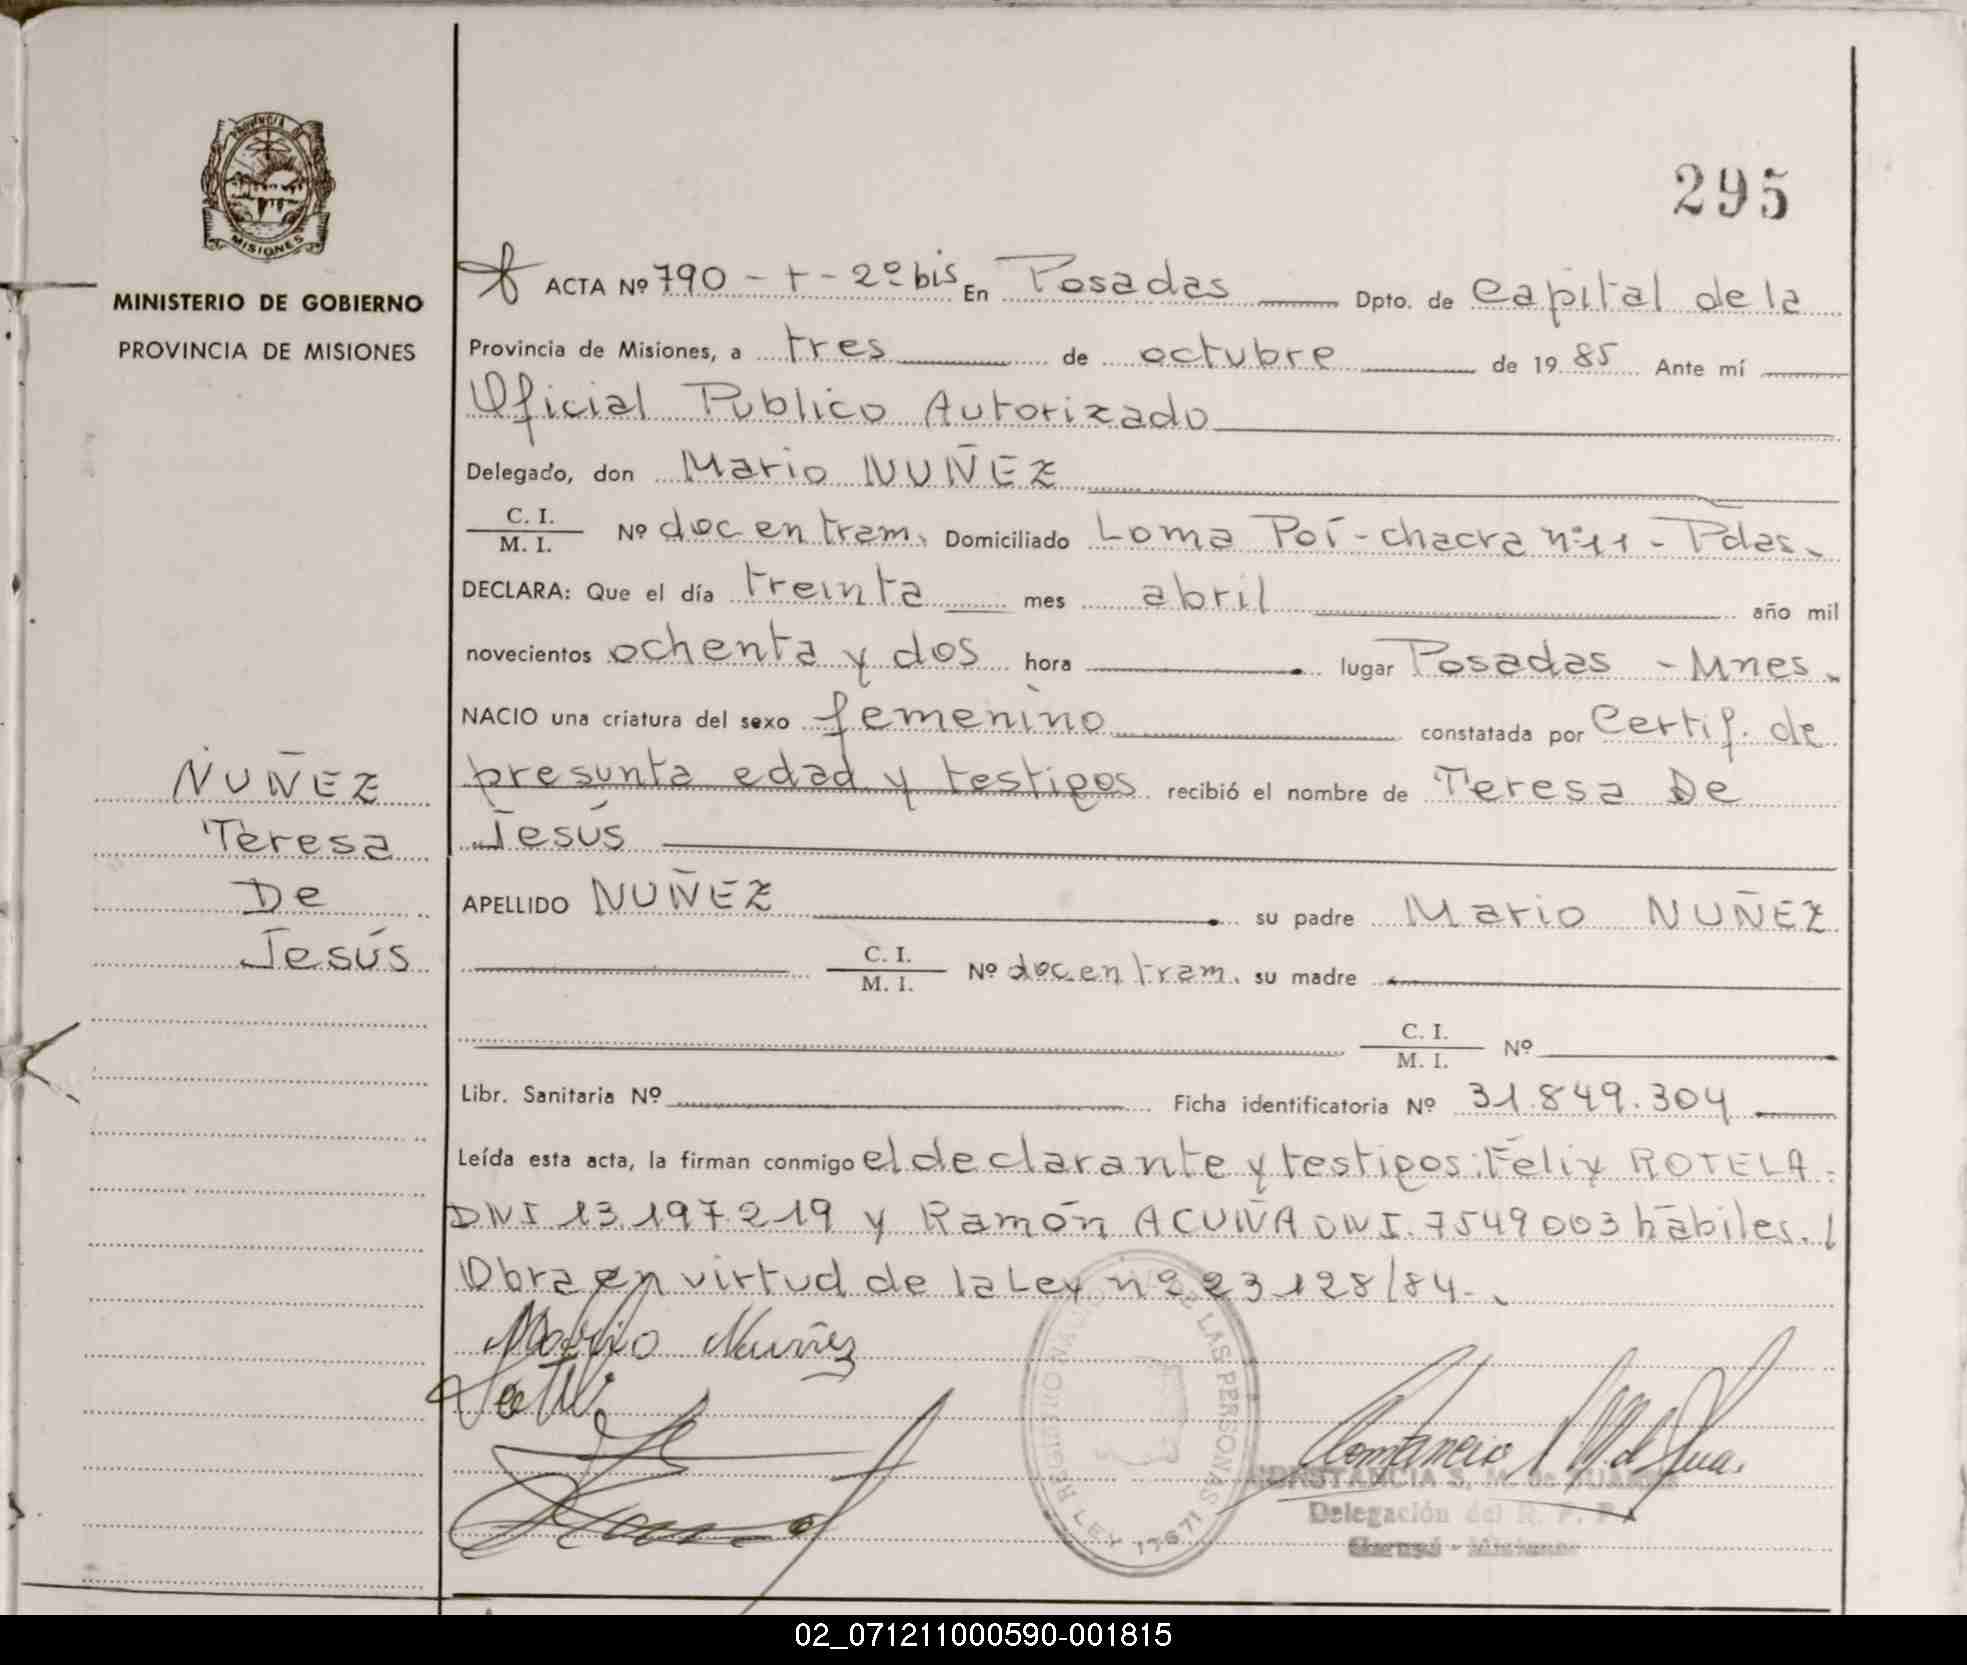 PROVINCIA DE
MISIONES
MINISTERIO DE GOBIERNO
PROVINCIA DE MISIONES
NUÑEZ
Teresa
De
Jesús
295
ACTA Nº 790 - t - 2º bis En Posadas Dpto. de Capital de la
Provincia de Misiones, a tres de octubre de 1985 Ante mí
Oficial Publico Autorizado
Delegado, don Mario NUÑEZ
C. I.
M. I. Nº doc en tram. Domiciliado Loma Poí - chacra nº 11 - Pdas.
DECLARA: Que el día treinta mes abril año mil
novecientos ochenta y dos hora lugar Posadas - Mnes.
NACIO una criatura del sexo femenino constatada por Certif. de
presunta edad y testigos recibió el nombre de Teresa De
Jesús
APELLIDO NUÑEZ su padre Mario NUÑEZ
C. I.
M. I. Nº doc en tram. su madre
C. I.
M. I. Nº
Libr. Sanitaria Nº Ficha identificatoria Nº 31.849.304
Leída esta acta, la firman conmigo el declarante y testigos: Félix ROTELA
DNI 13.197.219 y Ramón ACUÑA DNI. 7549003 hábiles.
Obra en virtud de la Ley nº 23128/84.
Mario Nuñez
REGISTRO NACIONAL DE LAS PERSONAS
LEY 17671
CONSTANCIA S. M. de
Delegación del R. P. P.
Misiones
02_071211000590-001815